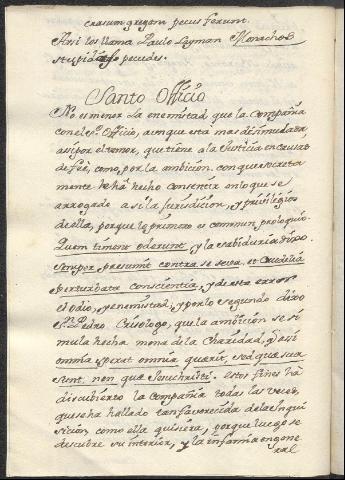 crasum gregem pecus ferunt.
Assi los llama Paulo Layman Monachos
stupidos pecudes.
Santo Officio
No es menor la enemistad que la Compañia
con el S.to Officio, aunque está mas disimulada,
asi por el temor, que tiene a la Justicia en causas
de feè, como, por la ambicion con que secreta
mente le hà hecho consentir en lo que se
arrogado a si la Jurisdicion, y privilegios
de ella, porque lo primero es commun prologuio.
Quem timent oderunt, y la sabiduria dixo.
Semper presumit contra se seva et crudelia
perturbata conscientia, y de esta error
el odio, y enemistad, y por lo segundo dixo
S.n Pedro Crisologo, que la ambicion se si
mula hecha mona de la Charidad, y assi
omnia sperat omnia quærit, sed quæ sua
sunt, non quæ Jesuchristi. estos fines hà
discubierto la Compañia todas las veces,
que se ha hallado tan favorecida de la Inqui
sicion como ella quisiera, porque luego se
descubre su interior, y la infamia en gene
ral